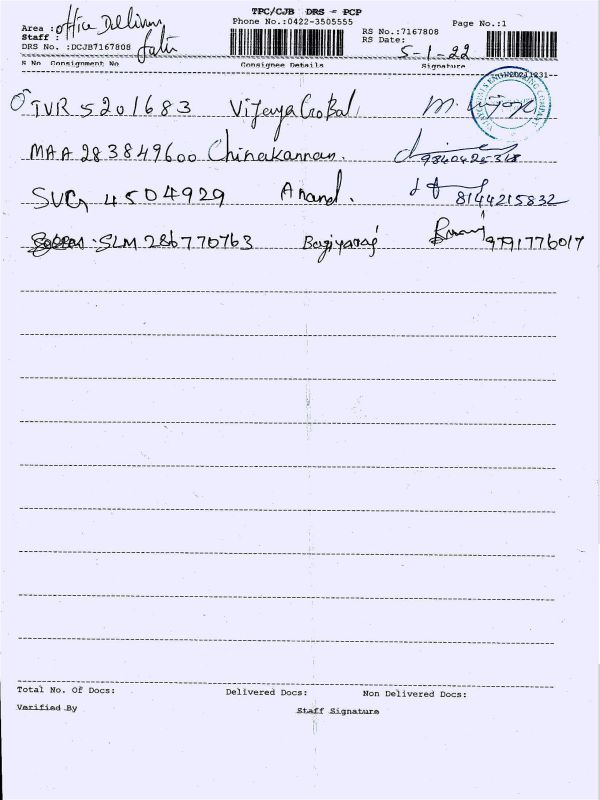 TPC/CJB DRS - PCP
Area : office Delivery
Phone No.:0422-3505555
Page No.:1
Staff :
RS No.:7167808
DRS No. :DCJB7167808
RS Date: 5-1-22
S No Consignment No Consignee Details Signature
TVR 5201683 VijayaGopal
MAA 283849600 Chinakannan. 9840425318
SVG 4504929 Anand. 8144215832
SLM 286770763 Bagiyaraj 9791776017
Total No. Of Docs: Delivered Docs: Non Delivered Docs:
Verified By Staff Signature